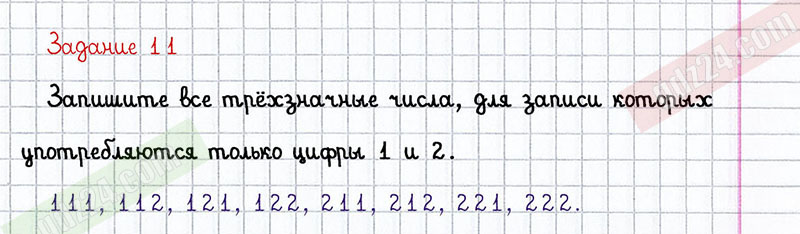 Задание 11
Запишите все трёхзначные числа, для записи которых
употребляются только цифры 1 и 2.
111, 112, 121, 122, 211, 212, 221, 222.
gdz24.com
gdz24.com